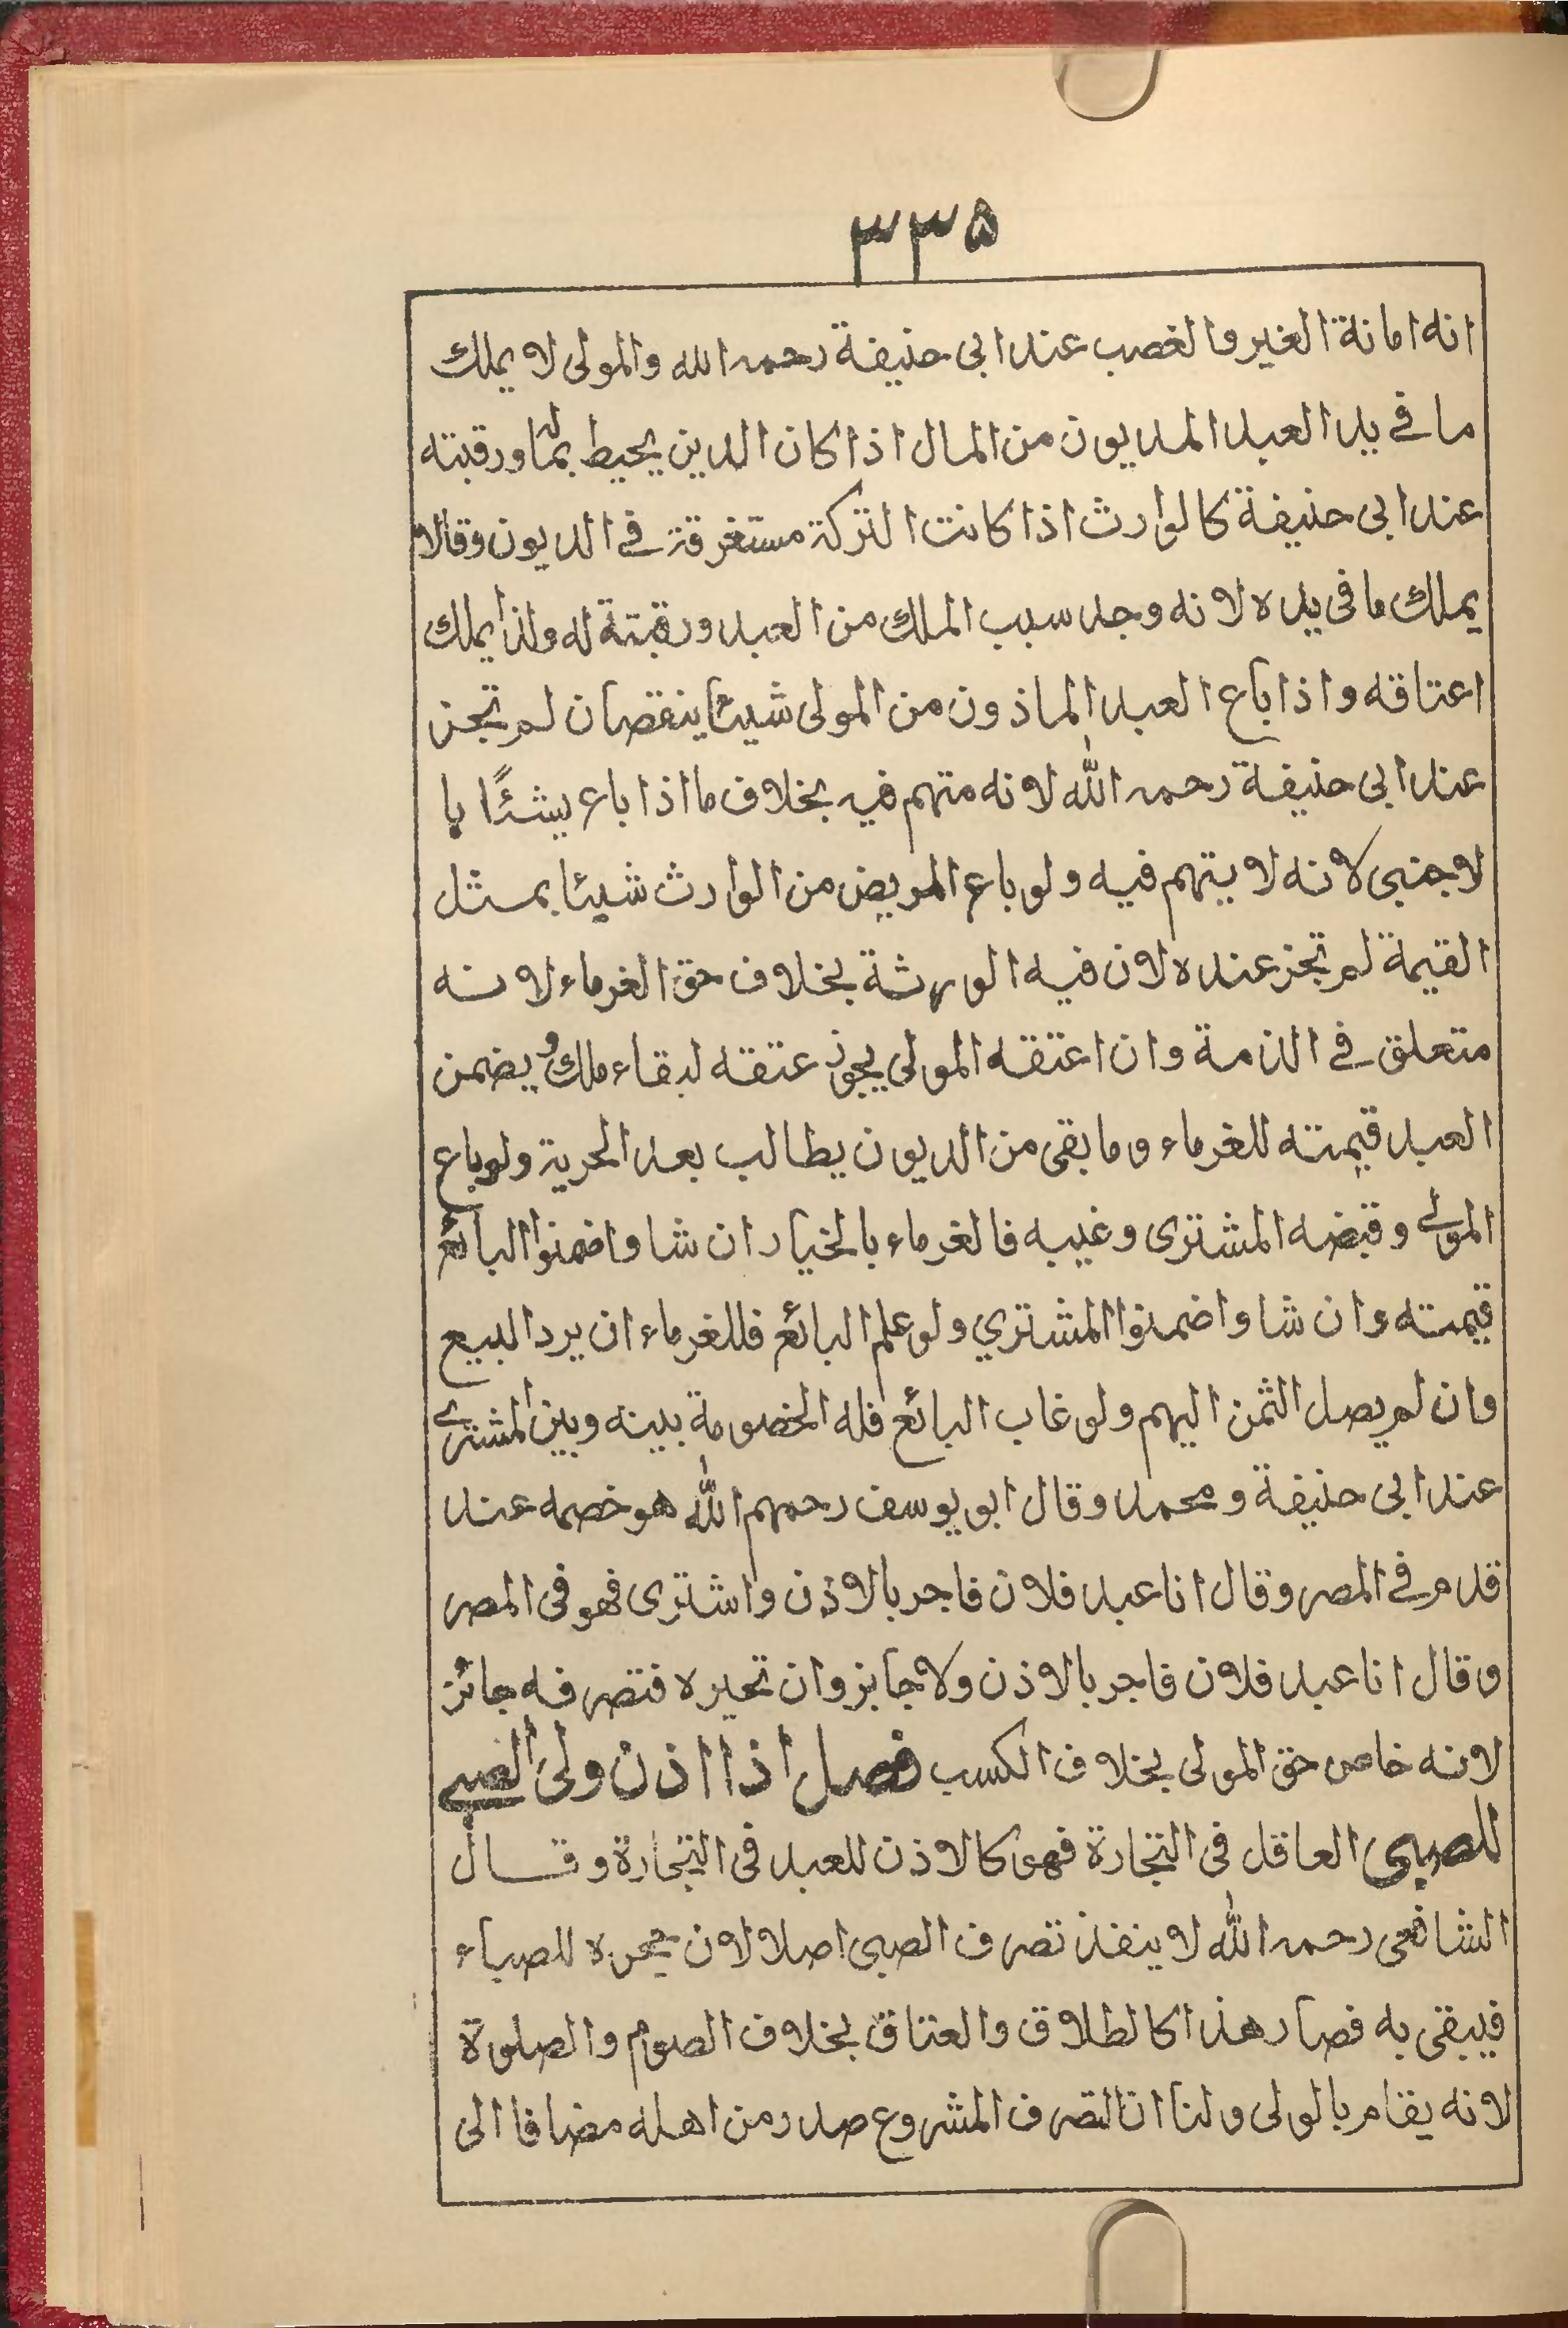 ٣٣۵
انه امانة الغير والغصب عند ابى حنيفة رحمه الله والمولى لا يملك
ما في يد العبد المديون من المال اذا كان الدين يحيط بماله ورقبته
عند ابى حنيفة كالوارث اذا كانت التركة مستغرقة في الديون وقالا
يملك ما فى يده لانه وجد سبب الملك من العبد ورقبتة له ولذا يملك
اعتاقه واذا باع العبد الماذون من المولى شيئا بنقصان لم تجز
عند ابى حنيفة رحمه الله لانه متهم فيه بخلاف ما اذا باع بشئًا با
لاجنبى لانه لا يتهم فيه ولو باع المريض من الوارث شيئا بمثل
القيمة لم تجز عنده لان فيه الورثة بخلاف حق الغرماء لانه
متعلق في الذمة وان اعتقه المولى يجوز عتقه لبقاء ملك ويضمن
العبد قيمته للغرماء وما بقى من الديون يطالب بعد الحرية ولو باع
المولے وقبضه المشترى وغيبه فالغرماء بالخيار ان شاوا ضمنوا البائع
قيمته وان شاوا ضمنوا المشتري ولو علم البائع فللغرماء ان يرد البيع
وان لم يصل الثمن اليهم ولو غاب البائع فله الخصومة بينه وبين المشترے
عند ابى حنيفة ومحمد وقال ابو يوسف رحمهم الله هو خصمه عند
قدم في المصر وقال انا عبد فلان فاجر بالاذن واشترى فهو فى المصر
وقال انا عبد فلان فاجر بالاذن ولا جايز وان تحيره فتصرفه جائز
لانه خاص حق المولى بخلاف الكسب فصل اذا اذن ولى الصبے
للصبى العاقل فى التجارة فهى كالاذن للعبد فى التجارة وقال
الشافعى رحمه الله لا ينفذ تصرف الصبى اصلا لان حجره للصباء
فيبقى به فصار هذا كالطلاق والعتاق بخلاف الصوم والصلوة
لانه يقام بالولى ولنا ان التصرف المشروع صدر من اهله مضافا الى